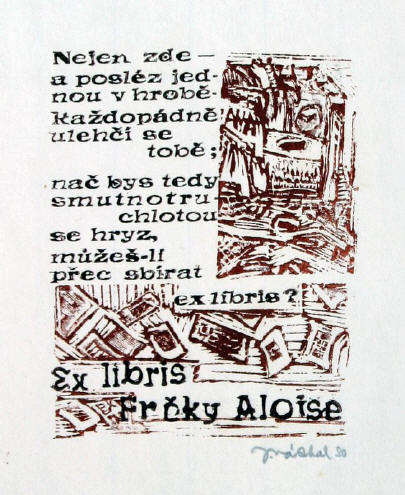 Nejen zde —
a posléz jed-
nou v hrobě-
každopádně
ulehčí se
tobě;
nač bys tedy
smutnotru-
chlotou
se hryz,
můžeš-li
přec sbírat
ex libris?
Ex libris
Frčky Aloise
J. Váchal 30